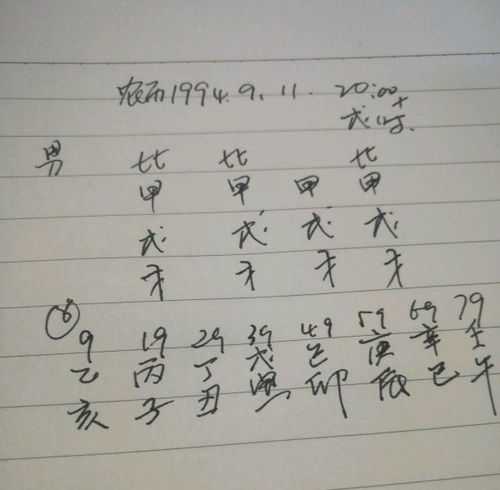 农历1994.9.11. 20:00+
戌时.
男 比 比 比
甲 甲 甲 甲
戌 戌 戌 戌
才 才 才 才
9 19 29 39 49 59 69 79
乙 丙 丁 戊 己 庚 辛 壬
亥 子 丑 寅 卯 辰 巳 午